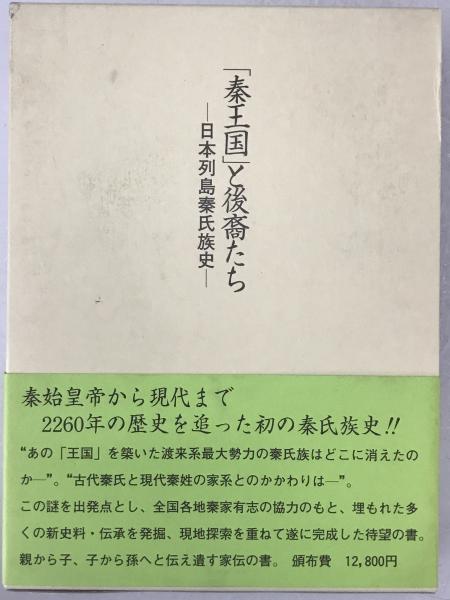 「秦王国」と後裔たち
―日本列島秦氏族史―
秦始皇帝から現代まで
2260年の歴史を追った初の秦氏族史!!
“あの「王国」を築いた渡来系最大勢力の秦氏族はどこに消えたの
か―”。“古代秦氏と現代秦姓の家系とのかかわりは―”。
この謎を出発点とし、全国各地秦家有志の協力のもと、埋もれた多
くの新史料・伝承を発掘、現地探索を重ねて遂に完成した待望の書。
親から子、子から孫へと伝え遺す家伝の書。 頒布費 12,800円